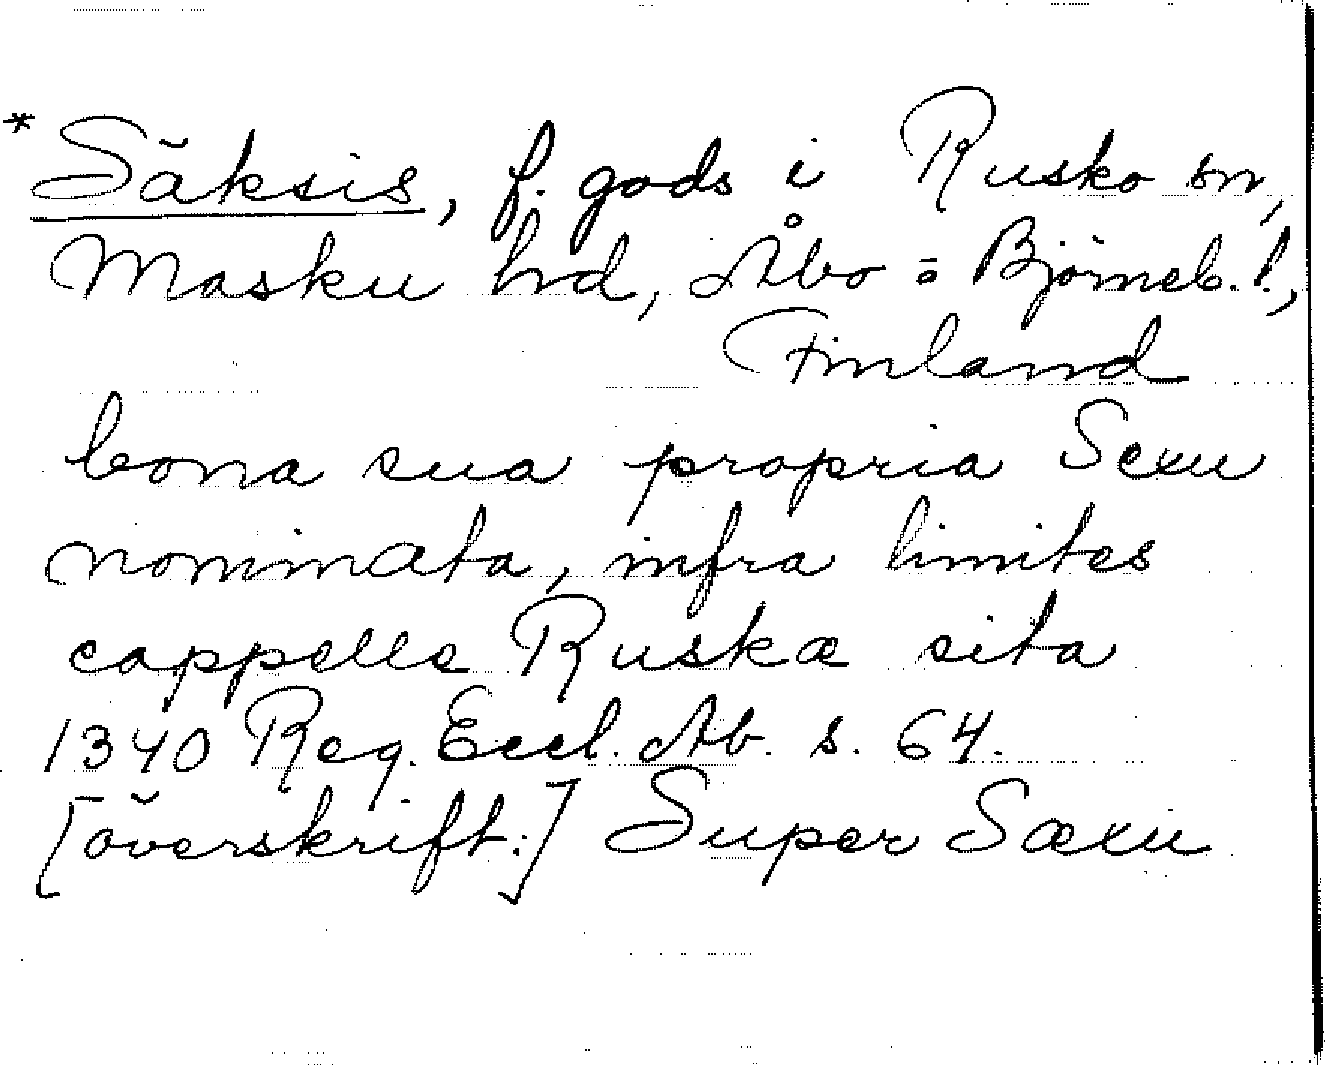 * Säksis, f. gods i Rusko sn,
Masku hd, Åbo = Björneb. l.,
Finland
bona sua propria Sexu
nominata, infra limites
cappelle Ruskæ sita
1340 Reg. Eccl. Ab. s. 64.
[överskrift:] Super Sæxu